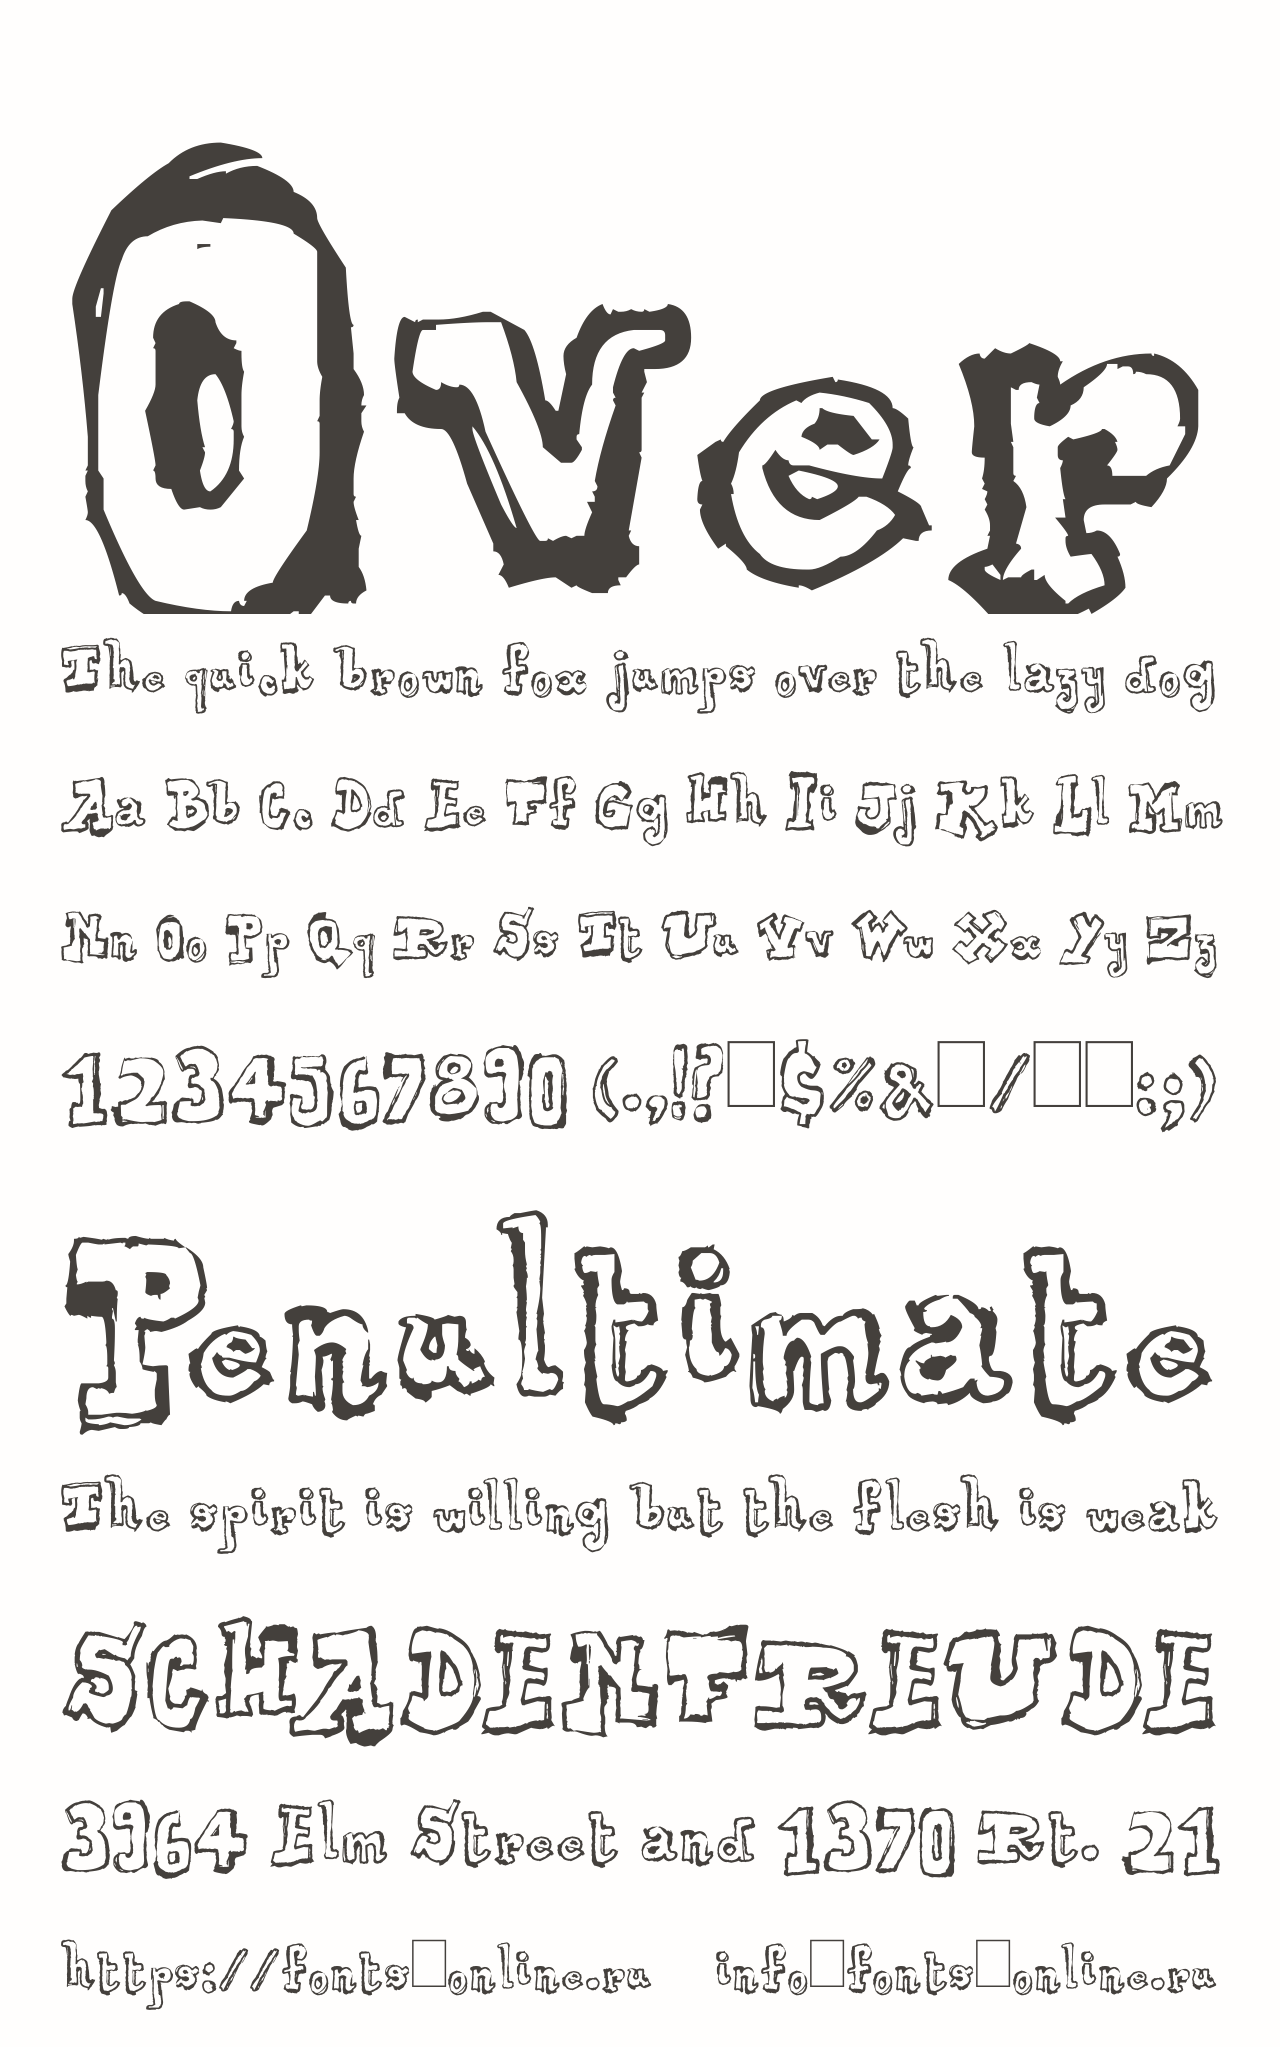 Over
The quick brown fox jumps over the lazy dog
Aa Bb Cc Dd Ee Ff Gg Hh Ii Jj Kk Ll Mm
Nn Oo Pp Qq Rr Ss Tt Uu Vv Ww Xx Yy Zz
1234567890 (.,!?□$%&□/□□:;)
Penultimate
The spirit is willing but the flesh is weak
SCHADENFREUDE
3964 Elm Street and 1370 Rt. 21
https://fonts□online.ru info□fonts□online.ru